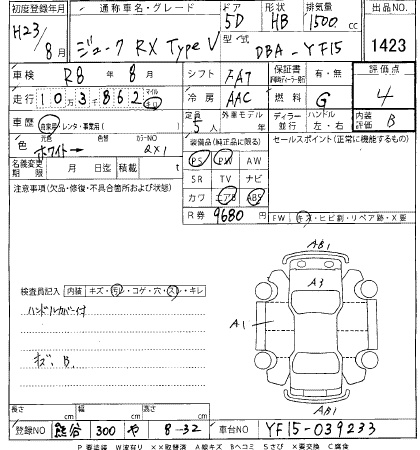 初度登録年月 通称車名・グレード ドア 形状 排気量 出品NO
H23/8月 ジューク RX Type V 5D HB 1500cc
型式 DBA-YF15 1423
車検 R8年 8月 シフト FAT 保証書 有・無 評価点
走行 103862 マイル キロ 冷房 AAC 燃料 G 4
車歴 自家用・レンタ・事業用( ) 定員 5人 外車モデル年 ディーラー 並行 ハンドル 左・右 内装評価 B
色 元色 ホワイト→ 色替 カラーNO QX1 装備品(純正品に限る) セールスポイント(正常に機能するもの)
名義変更期限 月 日 積載 t PS PW AW
注意事項(欠品・修復・不具合箇所および状態) SR TV ナビ
カワ エアB ABS
R券 9680 FW キズ・ヒビ割・リペア跡・X要
AB1
A3
A1
AB1
検査員記入 内装 キズ・モレ・コゲ・穴・スレ・キレ
ハンドルカバー付
キズ、B、
長さ cm 幅 cm 高さ cm
登録NO 熊谷 300 や 8-32 車台NO YF15-039233
P要塗装 W波有り XX取替済 A線キズ Bヘコミ Sさび X要交換 C腐食